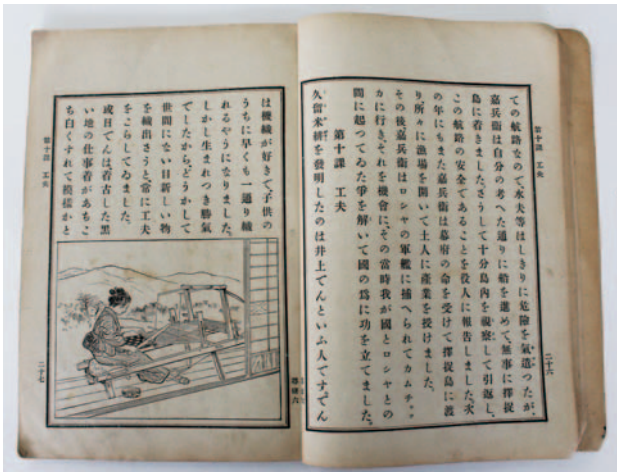 第十課 工夫
二十六
ての航路なので、水夫等はしきりに危險を氣遣つたが、
嘉兵衞は自分の考へた通りに船を進めて、無事に擇捉
島に着きました。さうして十分島内を視察して引返し、
この航路の安全であることを役人に報告しました。次
の年にもまた嘉兵衞は幕府の命を受けて擇捉島に渡
り、所々に漁場を開いて土人に産業を授けました。
その後嘉兵衞はロシヤの軍艦に捕へられてカムチャッ
カに行き、それを機會に、その當時我が國とロシヤとの
間に起つてゐた爭を解いて國の爲に功を立てました。
第十課 工夫
久留米絣を發明したのは井上でんといふ人です。でん
は機織が好きで、子供の
うちに早くも一通り織
れるやうになりました。
しかし生まれつき勝氣
でしたから、どうかして
世間にない目新しい物
を織出さうと、常に工夫
をこらしてゐました。
或日でんは、着古した黒
い地の仕事着があちこ
ち白くすれて模樣かと
第十課 工夫
二十七